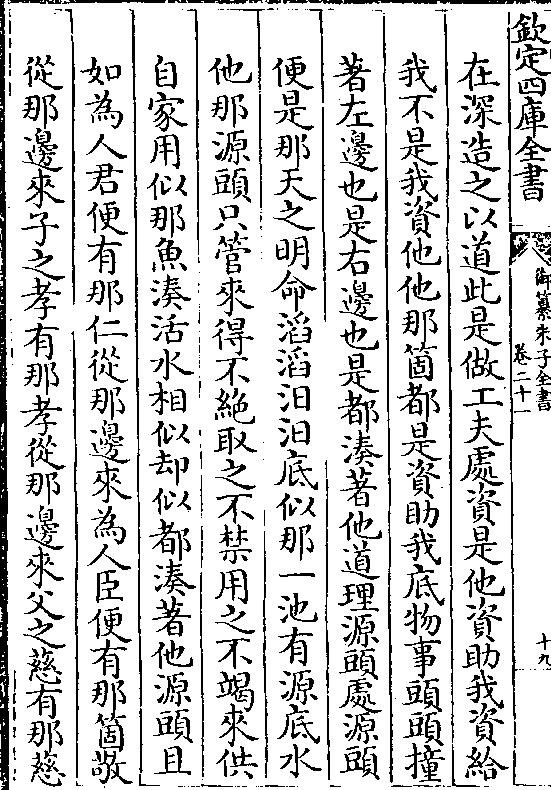 欽定四庫全書
御纂朱子全書
卷二十一
十九
在深造之以道此是做工夫處資是他資助我資給
我不是我資他他那箇都是資助我底物事頭頭撞
著左邊也是右邊也是都湊著他道理源頭處源頭
便是那天之明命滔滔汨汨底似那一池有源底水
他那源頭只管來得不絕取之不禁用之不竭來供
自家用似那魚湊活水相似却似都湊著他源頭且
如為人君便有那仁從那邊來為人臣便有那箇敬
從那邊來子之孝有那孝從那邊來父之慈有那慈